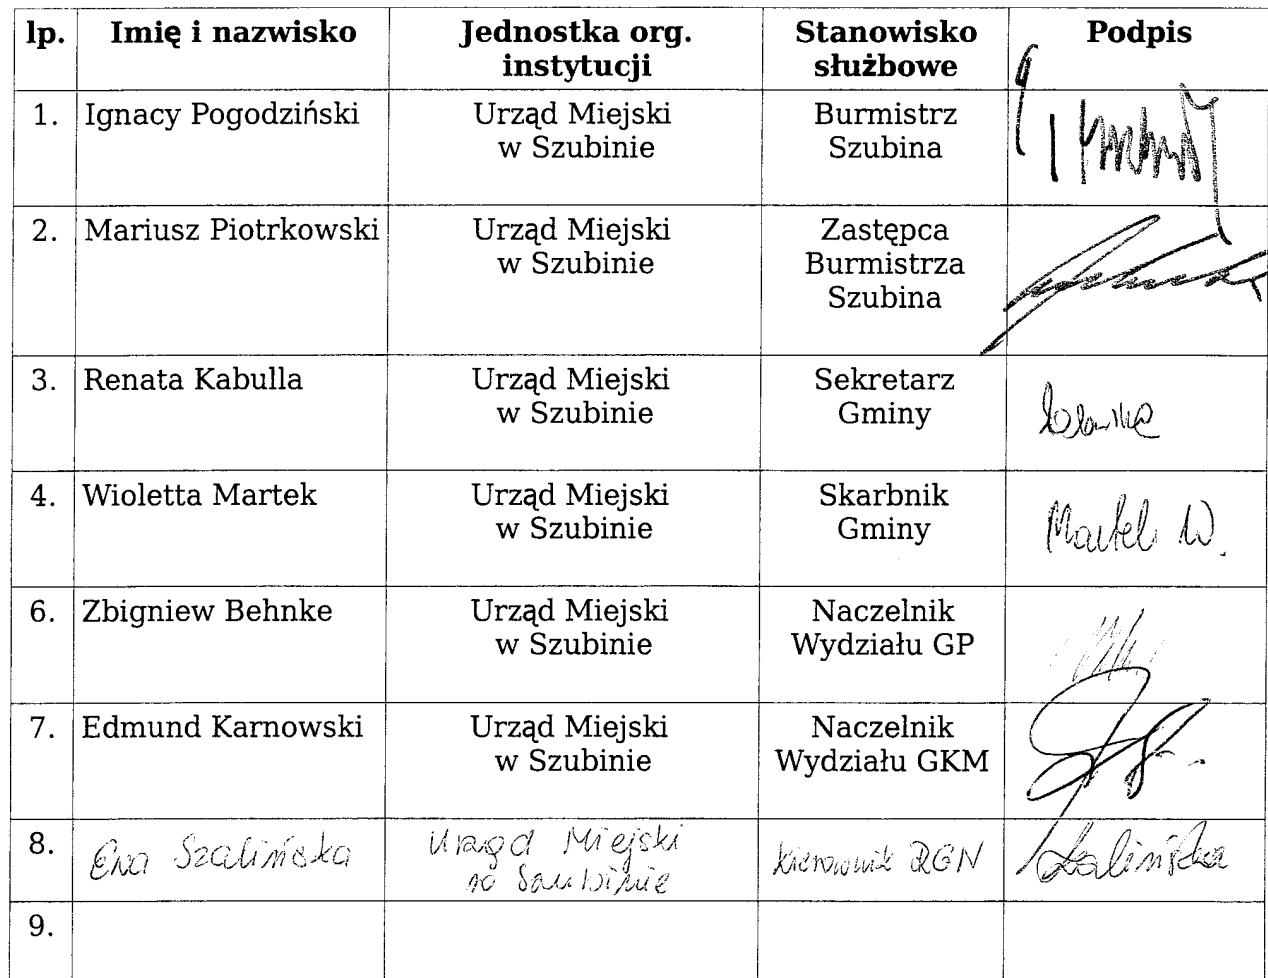 lp. Imię i nazwisko Jednostka org. instytucji Stanowisko służbowe Podpis
1. Ignacy Pogodziński Urząd Miejski w Szubinie Burmistrz Szubina
2. Mariusz Piotrkowski Urząd Miejski w Szubinie Zastępca Burmistrza Szubina
3. Renata Kabulla Urząd Miejski w Szubinie Sekretarz Gminy
4. Wioletta Martek Urząd Miejski w Szubinie Skarbnik Gminy Martek W.
6. Zbigniew Behnke Urząd Miejski w Szubinie Naczelnik Wydziału GP
7. Edmund Karnowski Urząd Miejski w Szubinie Naczelnik Wydziału GKM
8. Ewa Szalińska Urząd Miejski w Szubinie Kierownik Szalińska
9.